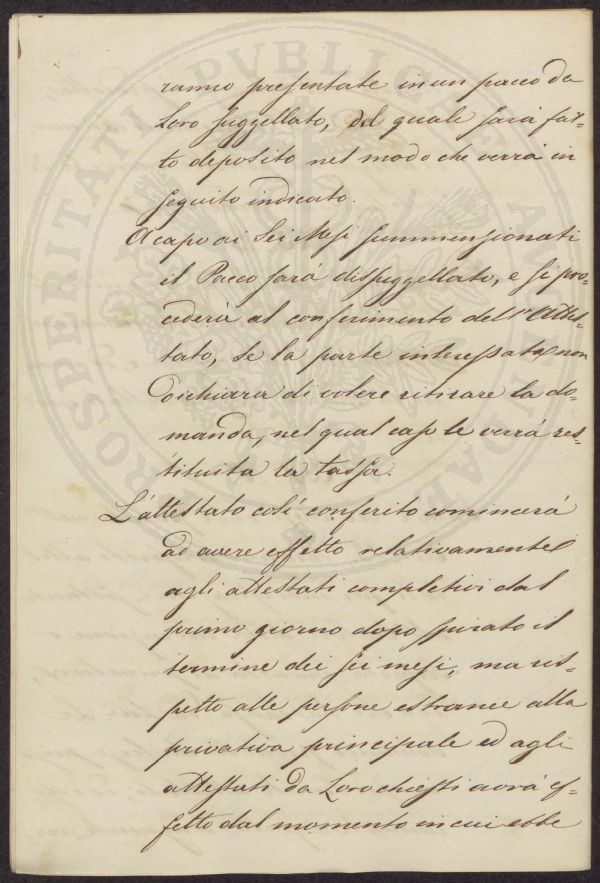 ranno presentate in un pacco da
Loro suggellato, del quale sarà fat-
to deposito nel modo che verrà in
seguito indicato.
A capo ai Sei Mesi summensionati
il Pacco sarà dissuggellato, e si pro-
cederà al conferimento dell'Attes-
tato, se la parte interessata non
dichiara di volere ritirare la do-
manda, nel qual caso le verrà res-
tituita la tassa.
L'attestato così conferito comincerà
ad avere effetto relativamente
agli attestati completivi dal
primo giorno dopo spirato il
termine dei sei mesi, ma ris-
petto alle persone estranee alla
privativa principale ed agli
attestati da Loro chiesti avrà ef-
fetto dal momento in cui ebbe
PROSPERITATI PVBLICAE AVGENDAE